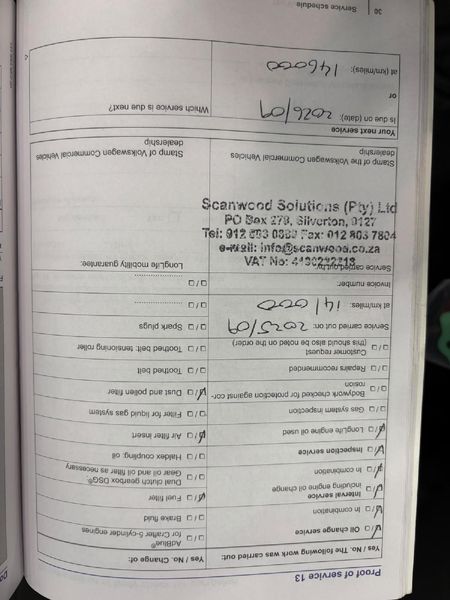 Proof of service 13
Yes / No. The following work was carried out:
Oil change service
In combination
Interval service
including engine oil change
In combination
Inspection service
LongLife engine oil used
Gas system inspection
Bodywork checked for protection against corrosion
Repairs recommended
Customer request
(this should also be noted on the order)
Service carried out on: 2025/09
at km/miles: 141000
Invoice number
Service carried out by
Scanwood Solutions (Pty) Ltd
PO Box 279, Silverton, 0127
e-mail: info@scanwood.co.za
Stamp of the Volkswagen Commercial Vehicles
dealership
Yes / No. Change of:
AdBlue®
for Crafter 5-cylinder engines
Brake fluid
Fuel filter
Dual clutch gearbox DSG®
Gear oil and oil filter as necessary
Haldex coupling: oil
Air filter insert
Filter for liquid gas system
Dust and pollen filter
Toothed belt
Toothed belt: tensioning roller
Spark plugs
LongLife mobility guarantee:
Stamp of Volkswagen Commercial Vehicles
dealership
Your next service
is due on (date): 2026/09
or
at (km/miles): 146000
Which service is due next?
30 Service schedule